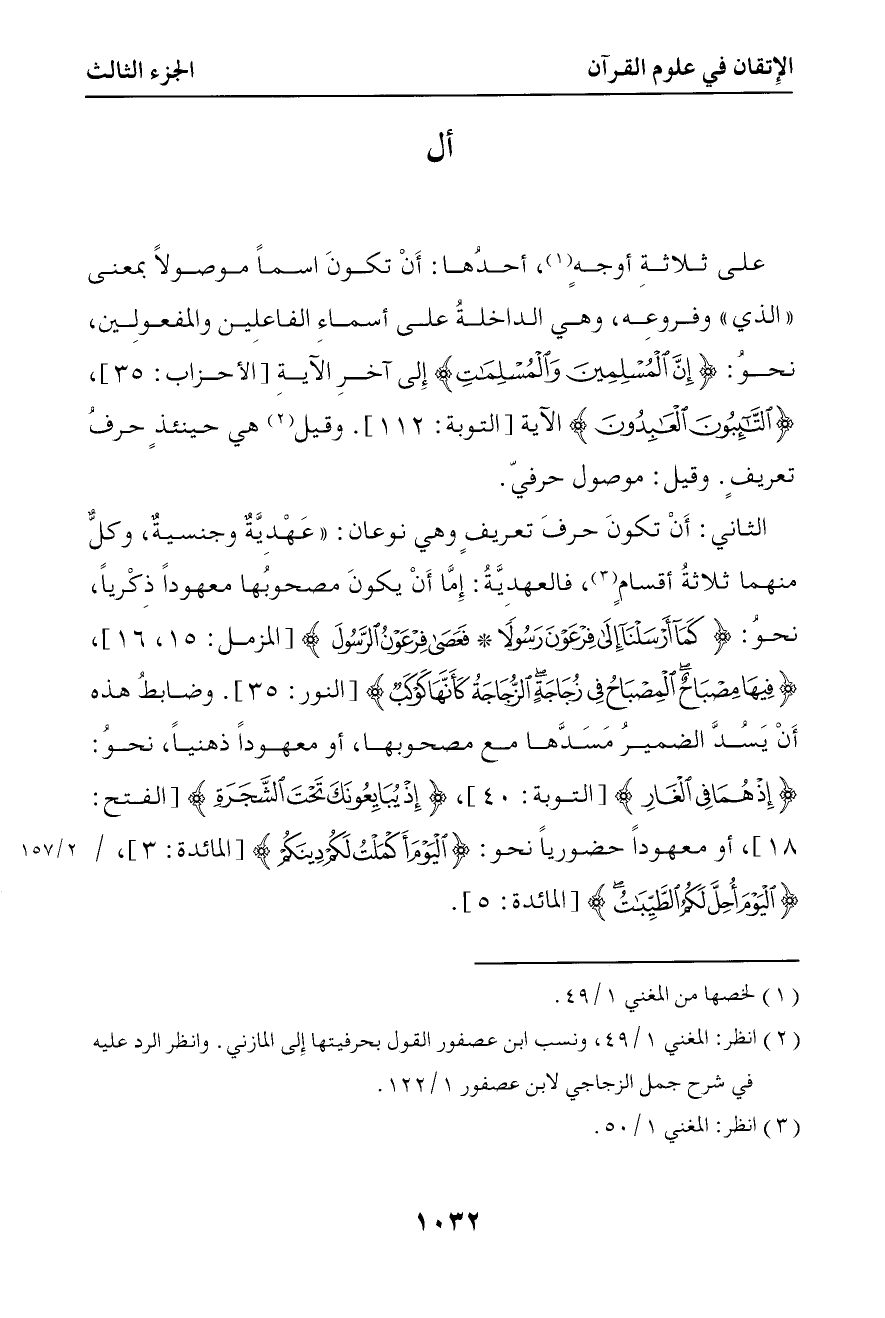 الإتقان في علوم القرآن الجزء الثالث
أل
على ثلاثةِ أوجهٍ(١)، أحدُها: أَنْ تكونَ اسماً موصولاً بمعنى
«الذي» وفروعِه، وهي الداخلةُ على أسماءِ الفاعلين والمفعولين،
نحوُ: ﴿إِنَّ ٱلْمُسْلِمِينَ وَٱلْمُسْلِمَٰتِ﴾ إلى آخرِ الآيةِ [الأحزاب: ٣٥]،
﴿ٱلتَّٰٓئِبُونَ ٱلْعَٰبِدُونَ﴾ الآية [التوبة: ١١٢]. وقيل(٢) هي حينئذٍ حرفُ
تعريفٍ. وقيل: موصول حرفيّ.
الثاني: أَنْ تكونَ حرفَ تعريفٍ وهي نوعان: «عَهْديَّةٌ وجنسيةٌ، وكلٌّ
منهما ثلاثةُ أقسامٍ(٣)، فالعهديَّةُ: إمَّا أَنْ يكونَ مصحوبُها معهوداً ذِكْرياً،
نحوُ: ﴿كَمَآ أَرْسَلْنَآ إِلَىٰ فِرْعَوْنَ رَسُولًا * فَعَصَىٰ فِرْعَوْنُ ٱلرَّسُولَ﴾ [المزمل: ١٥، ١٦]،
﴿فِيهَا مِصْبَاحٌ ۖ ٱلْمِصْبَاحُ فِى زُجَاجَةٍ ۖ ٱلزُّجَاجَةُ كَأَنَّهَا كَوْكَبٌ﴾ [النور: ٣٥]. وضابطُ هذه
أَنْ يَسُدَّ الضميرُ مَسَدَّها مع مصحوبها، أو معهوداً ذهنياً، نحوُ:
﴿إِذْ هُمَا فِى ٱلْغَارِ﴾ [التوبة: ٤٠]، ﴿إِذْ يُبَايِعُونَكَ تَحْتَ ٱلشَّجَرَةِ﴾ [الفتح:
١٨]، أو معهوداً حضورياً نحو: ﴿ٱلْيَوْمَ أَكْمَلْتُ لَكُمْ دِينَكُمْ﴾ [المائدة: ٣]، / ١٥٧/٢
﴿ٱلْيَوْمَ أُحِلَّ لَكُمُ ٱلطَّيِّبَٰتُ ۖ﴾ [المائدة: ٥].
(١) لخصها من المغني ٤٩/١.
(٢) انظر: المغني ٤٩/١، ونسب ابن عصفور القول بحرفيتها إلى المازني. وانظر الرد عليه
في شرح جمل الزجاجي لابن عصفور ١٢٢/١.
(٣) انظر: المغني ٥٠/١.
١٠٣٢